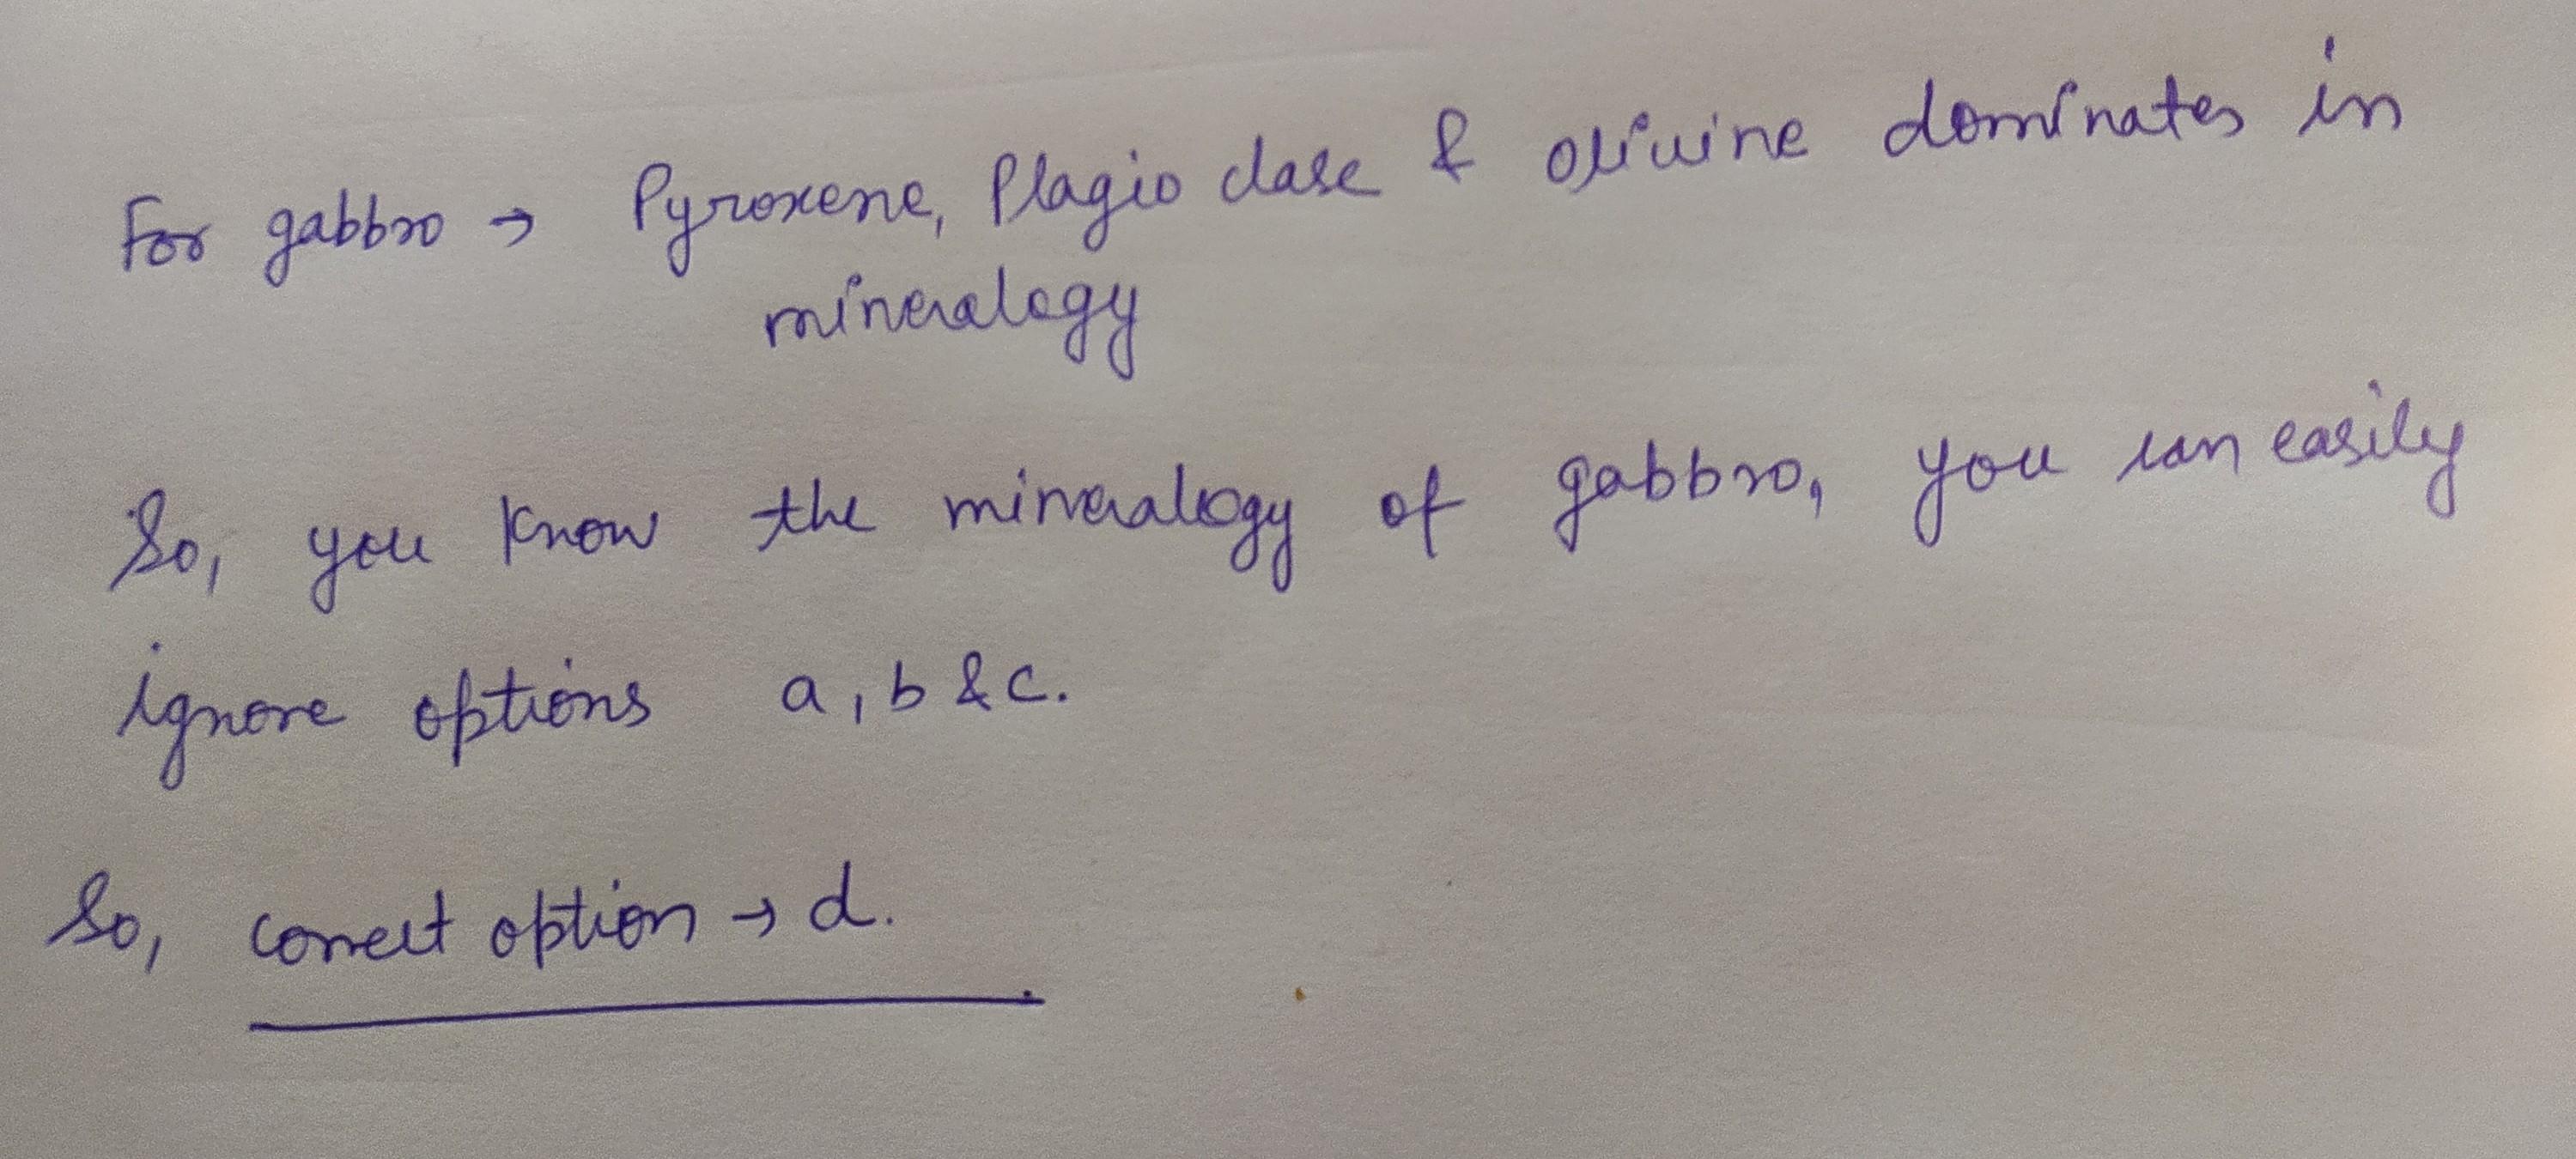 For gabbro → Pyroxene, Plagio clase & olivine dominates in
mineralogy
So, you know the mineralogy of gabbro, you can easily
ignore options a, b & c.
So, correct option → d.